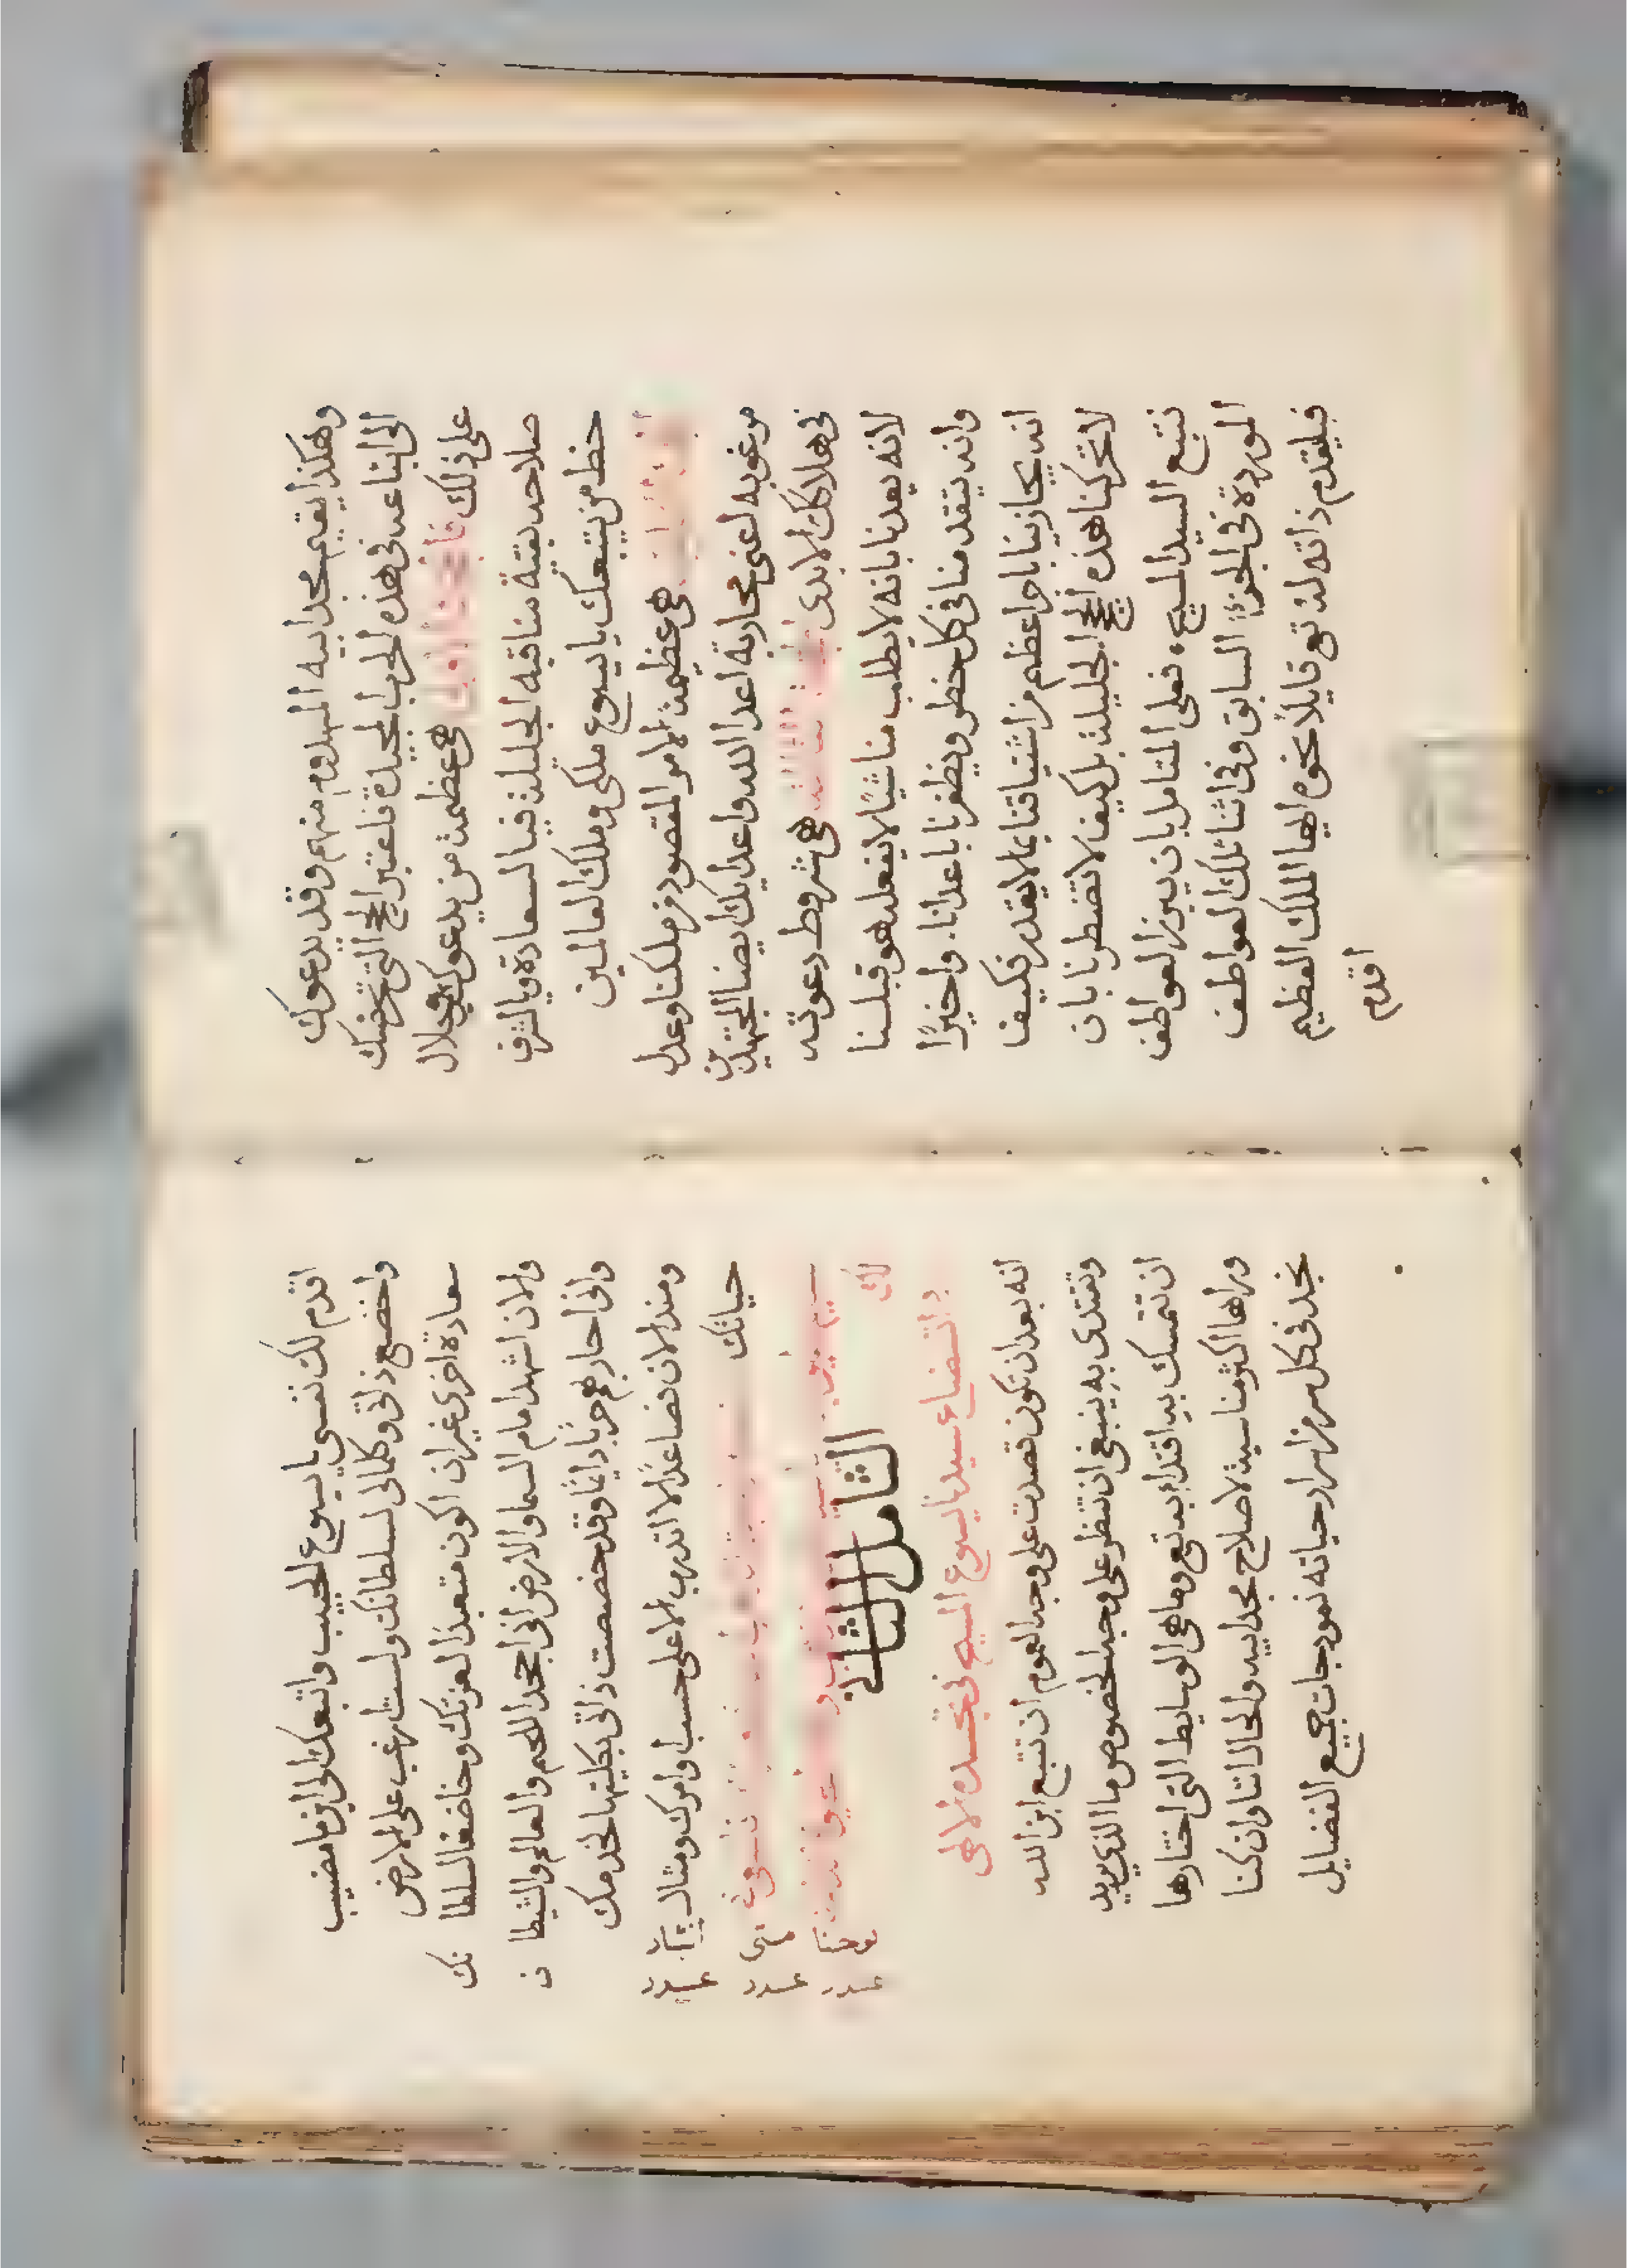 وهكذا يقيم مجد ابيه المهدوم منهم وقد يدعوك
الى اتباعه فى هذه الحرب المجيدة فلنعتبر الحجج التى تحرضك
على ذلك فالحجة الاولى هى عظمة من يدعوك جلال
صلاحه بقية مناقبه الجليلة فيا لسعادة ويا لشرف
حظ من يتبعك يا يسوع ملكى وملك العالمين
هى عظيمة الامور المقصود من ملكنا وعدل
مرغوبه لعنى محاربة اعدا الله واعدايك ايضا المجتهدين
فى هلاكك الابدى الحجة الثالثة هى شروط دعوته
لانه يعدنا بانه لا يطلب منا شيًا لا يفعله هو قبلنا
وانه يتقدمنا فى كل خطر ويظفرنا باعدانا. واخيرًا
انه يجازينا باجر اعظم من اشتياقنا بما لا يقدر فكيف
لا تحركنا هذه الحجج الجليلة بل كيف لا تضطرنا بان
نتبع السيد المسيح، فعلى المتامل بان يبرز العواطف
الموردة فى الجزء السابق وفى اثنا تلك العواطف
فيلقدم ذاته لله تع قايلاً نحوه ايها الملك العظيم
اقدم
اقدم لك نفسى يا يسوع الحبيب واتبعك الى اين ما مضيت
واخضع ذاتى وكلما لى لسلطانك ولست ارغب على الارض
سعادة اخرى غير ان اكون متعبدًا لعزتك وخاضعًا لسلطانك
والان اشهد امام السما والارض انى اجحد اللحم والعالم والشيطان
وانى احاربهم حربًا دايمًا وقد خصصت ذاتى بكليتها لخدمتك
ومنذ الان فصاعدًا لا اتدرب الا على حسب اوامرك ومثال
حياتك
التامل الثانى
فى اتضاع سيدنا يسوع المسيح فى تجسده الالهى
انه بعد ان تكون قصدت على وجه العموم ان تتبع ابن الله
وتقتدى به ينبغى ان تنظر على وجه الخصوص ما الذى يريد
ان تتمسك به اقتداء به تع وما هى الوسايط التى اختارها
وراها اكثر مناسبة لاصلاح مجد ابيه ولحالاتنا وان كنا
نجد فى كل سر من اسرار حياته نموذجات لجميع الفضايل